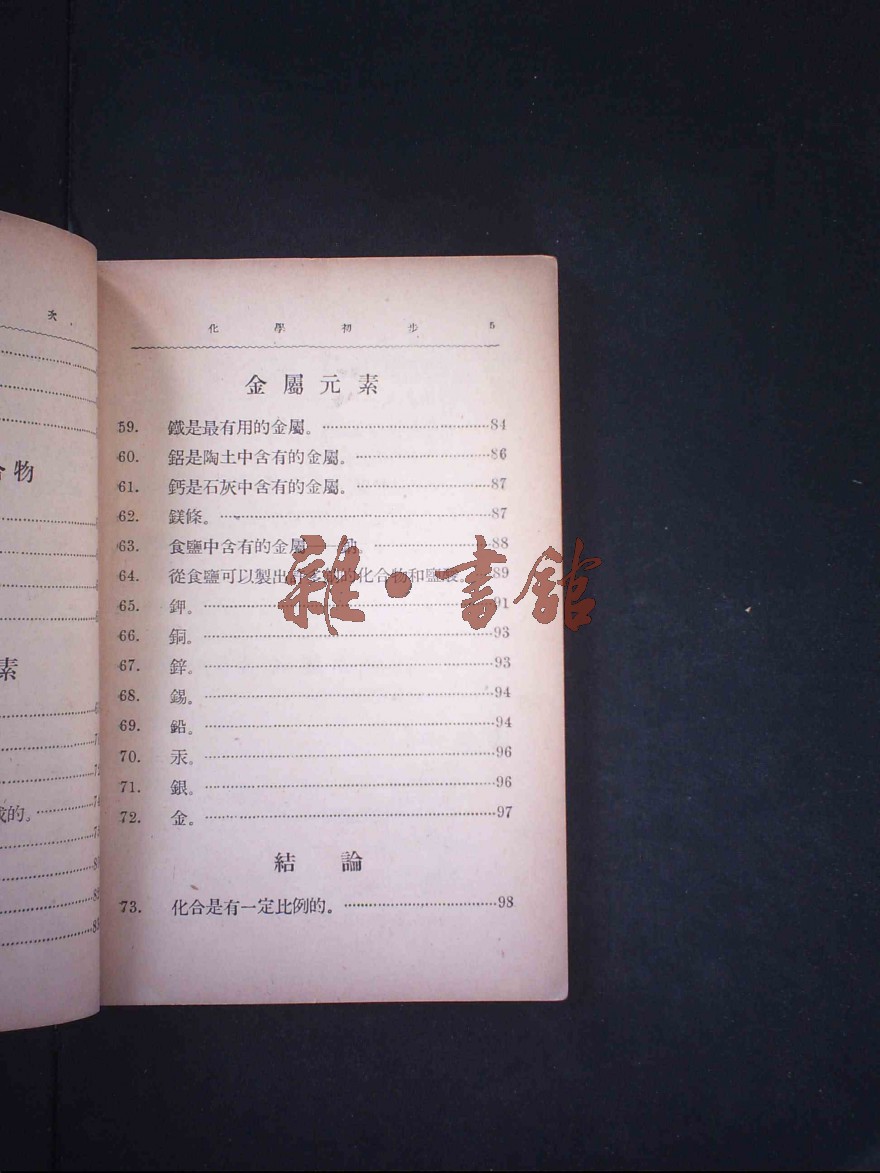 次
合物
素
成的。
化學初步 5
金屬元素
59. 鐵是最有用的金屬。 84
60. 鋁是陶土中含有的金屬。 86
61. 鈣是石灰中含有的金屬。 87
62. 鎂條。 87
63. 食鹽中含有的金屬——鈉。 88
64. 從食鹽可以製出許多的化合物和鹽酸。 89
65. 鉀。 91
66. 銅。 93
67. 鋅。 93
68. 錫。 94
69. 鉛。 94
70. 汞。 96
71. 銀。 96
72. 金。 97
結論
73. 化合是有一定比例的。 98
雜·書館